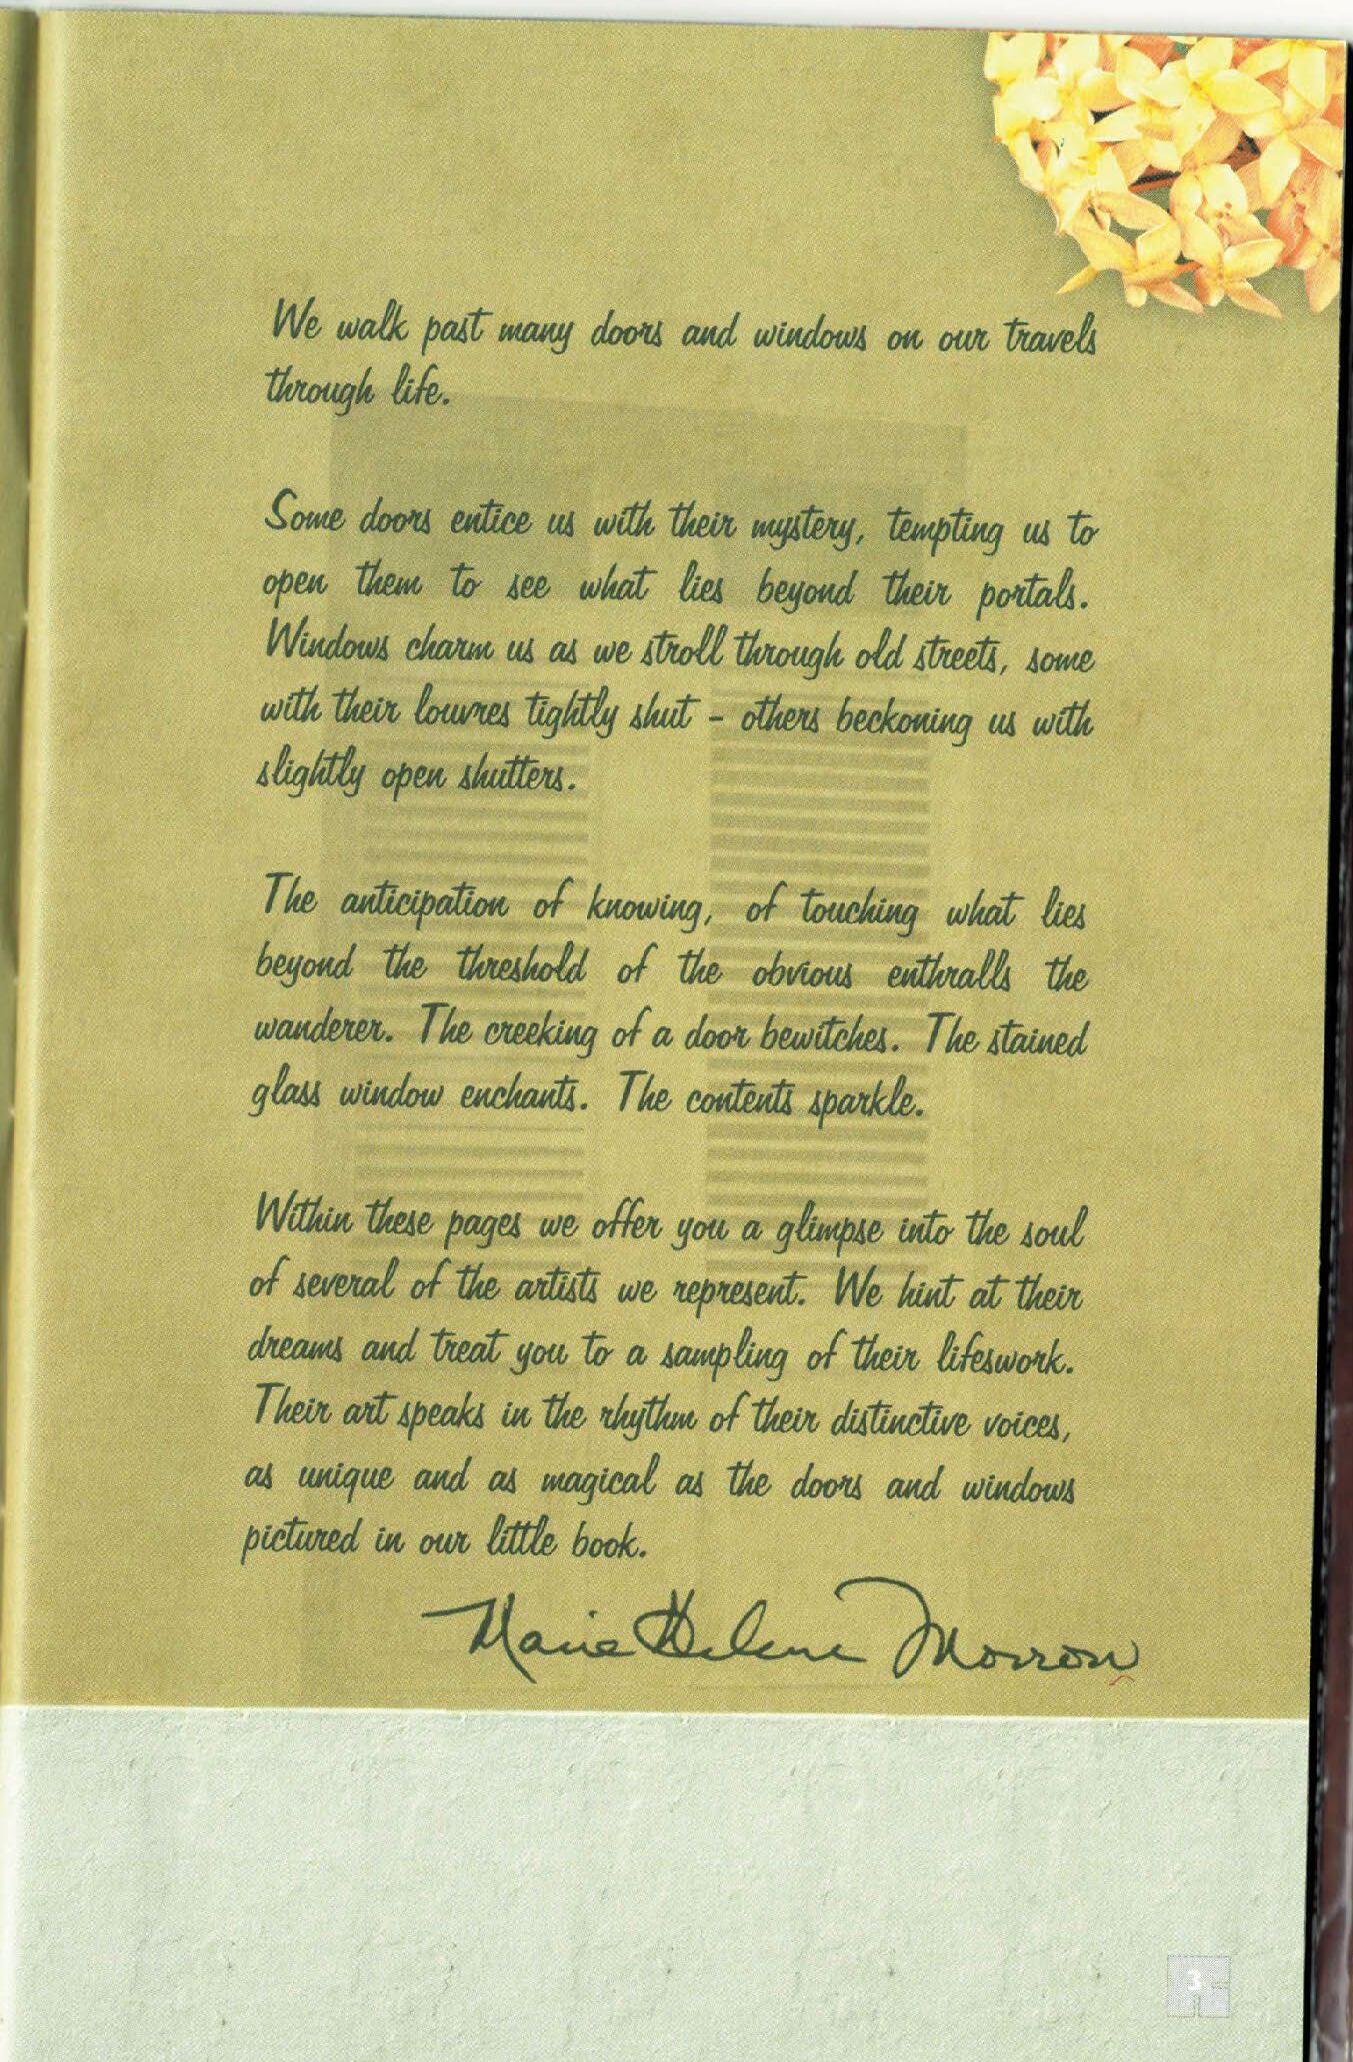 We walk past many doors and windows on our travels
through life.
Some doors entice us with their mystery, tempting us to
open them to see what lies beyond their portals.
Windows charm us as we stroll through old streets, some
with their louvres tightly shut - others beckoning us with
slightly open shutters.
The anticipation of knowing, of touching what lies
beyond the threshold of the obvious enthralls the
wanderer. The creeking of a door bewitches. The stained
glass window enchants. The contents sparkle.
Within these pages we offer you a glimpse into the soul
of several of the artists we represent. We hint at their
dreams and treat you to a sampling of their lifeswork.
Their art speaks in the rhythm of their distinctive voices,
as unique and as magical as the doors and windows
pictured in our little book.
Marie Helene Morrow
3